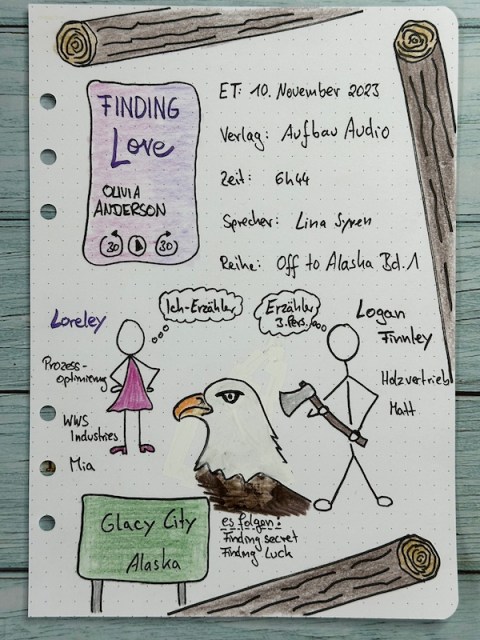 FINDING
Love
OLIVIA
ANDERSON
30 30
ET: 10. November 2023
Verlag: Aufbau Audio
Zeit: 6h44
Sprecher: Lina Syren
Reihe: Off to Alaska Bd. 1
Loreley
Ich-Erzähler
Prozess-
optimierung
WWS
Industries
Mia
Erzähler
3. Pers.
Logan
Finnley
Holzvertrieb
Matt
Glacy City
Alaska
es folgen:
Finding secret
Finding Luck